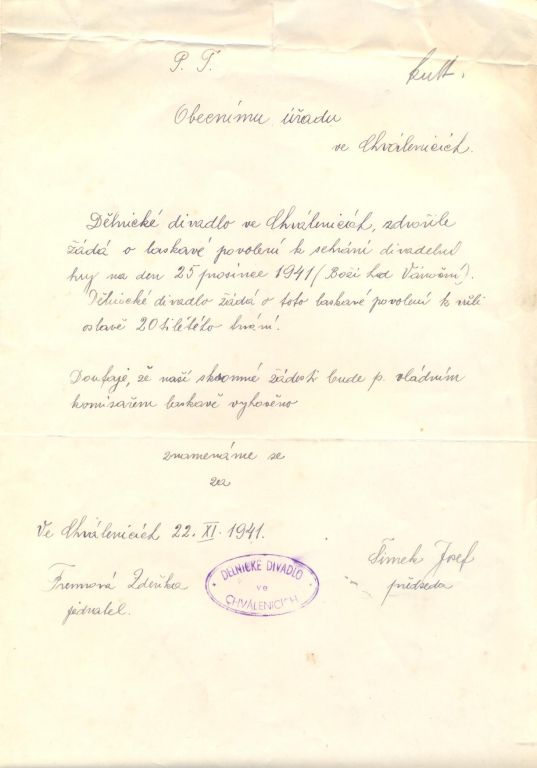 P. T.
kult.
Obecnímu úřadu
ve Chválenicích.
Dělnické divadlo ve Chválenicích, zdvořile
žádá o laskavé povolení k sehrání divadelní
hry na den 25 prosince 1941 (Boží hod Vánoční).
Dělnické divadlo žádá o toto laskavé povolení k vůli
oslavě 20tiletého trvání.
Doufaje, že naší skromné žádosti bude p. vládním
komisařem laskavě vyhověno
znamenáme se
za
Ve Chválenicích 22. XI. 1941.
Šimek Josef
předseda
Zdeňka
jednatel.
DĚLNICKÉ DIVADLO
ve
CHVÁLENICÍCH